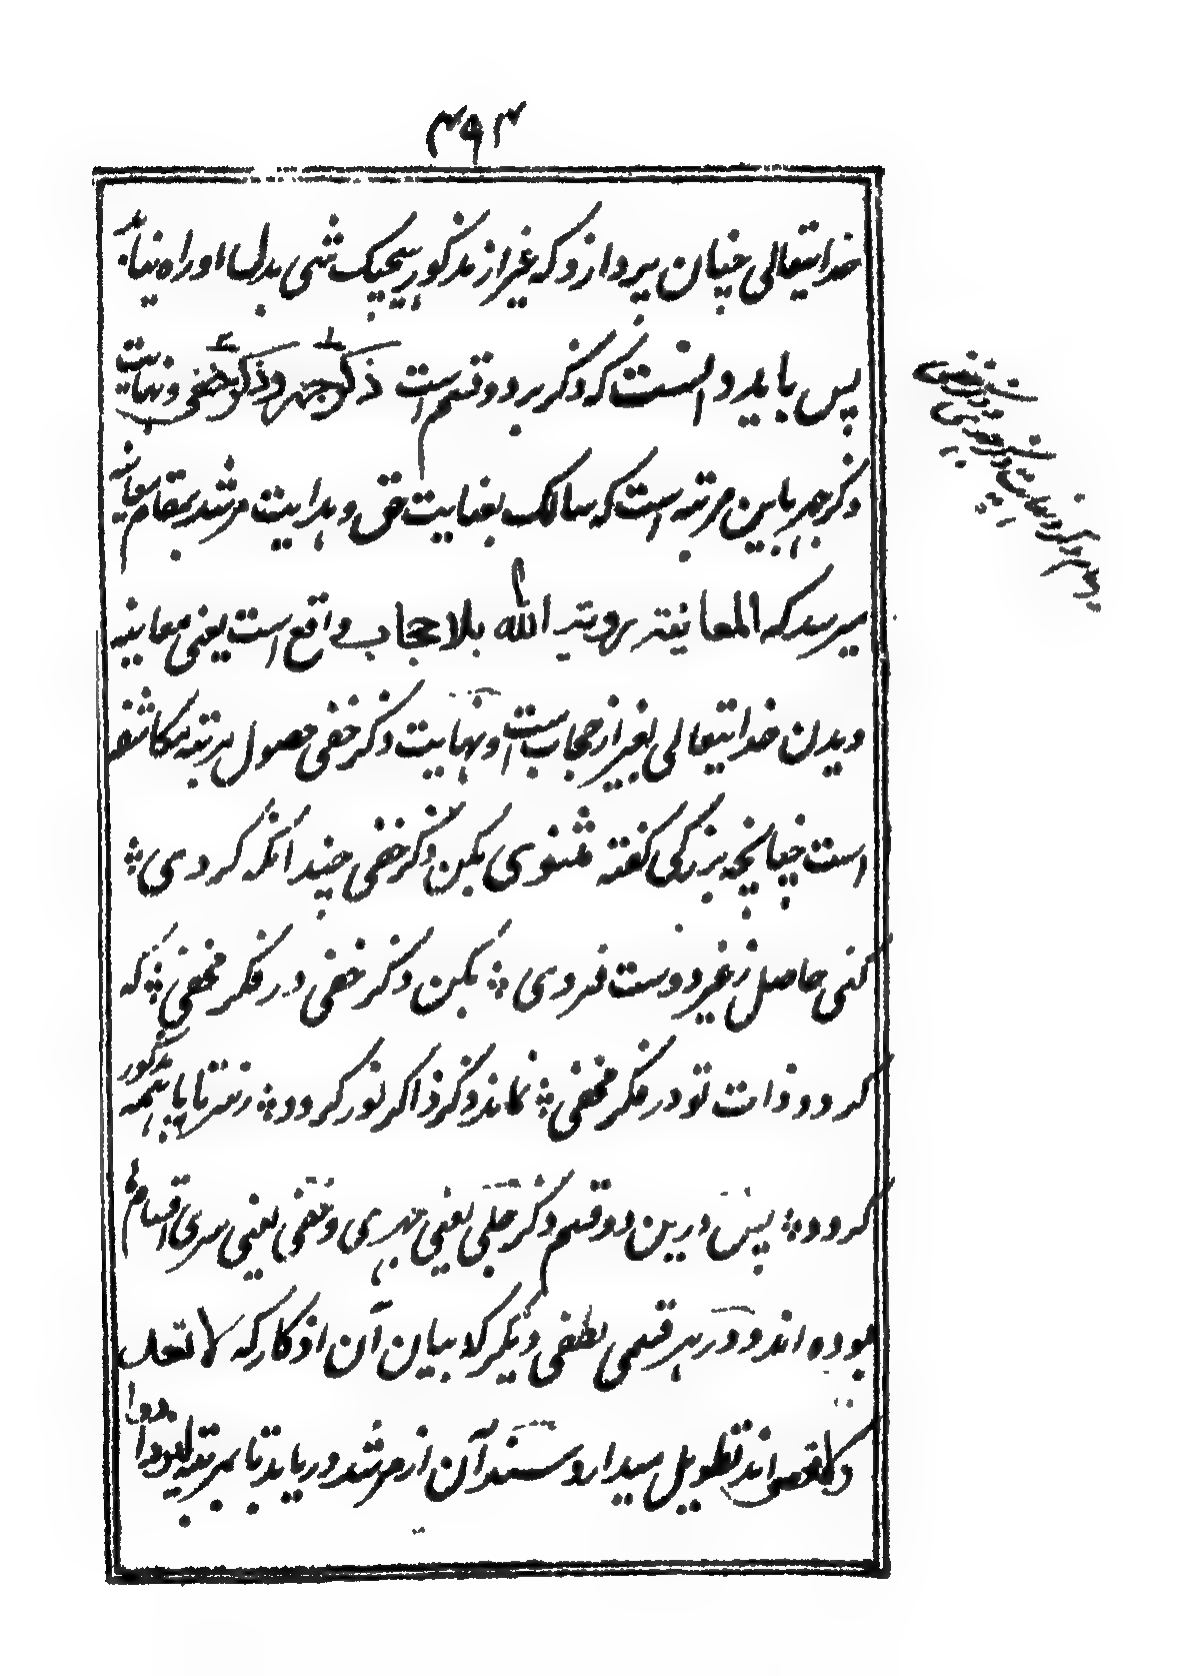 ۴۹۴
خدایتعالی چنان پردازد که غیر از مذکور هیچیک شی بدل او راه نیابد
پس باید دانست که ذکر بر دو قسم است ذکر جهر و ذکر خفی و نهایت
ذکر جهر باین مرتبه است که سالک بعنایت حق و هدایت مرشد بمقام معاینه
میرسد که المعاینة رویة الله بلا حجاب واقع است یعنی معاینه
دیدن خدایتعالی بغیر از حجاب است و نهایت ذکر خفی حصول مرتبه مکاشفه
است چنانچه بزرگی گفته مثنوی بکن ذکر خفی چندانکه کردی ؞
کنی حاصل ز غیر دوست فردی ؞ بکن ذکر خفی در فکر مخفی ؞ که
گردد ذات تو در فکر مخفی ؞ نماند ذکر ذاکر نور گردد ؞ ز سر تا پا همه مذکور
گردد ؞ پس درین دو قسم ذکر جلی یعنی جهری و خفی یعنی سری اقسام
بوده اند و در هر قسمی لطفی دیگر کلا بیان آن اذکار که لا تعد
و لا تحصی اند تطویل میدارد سند آن از مرشد دریابد تا بمرتبه